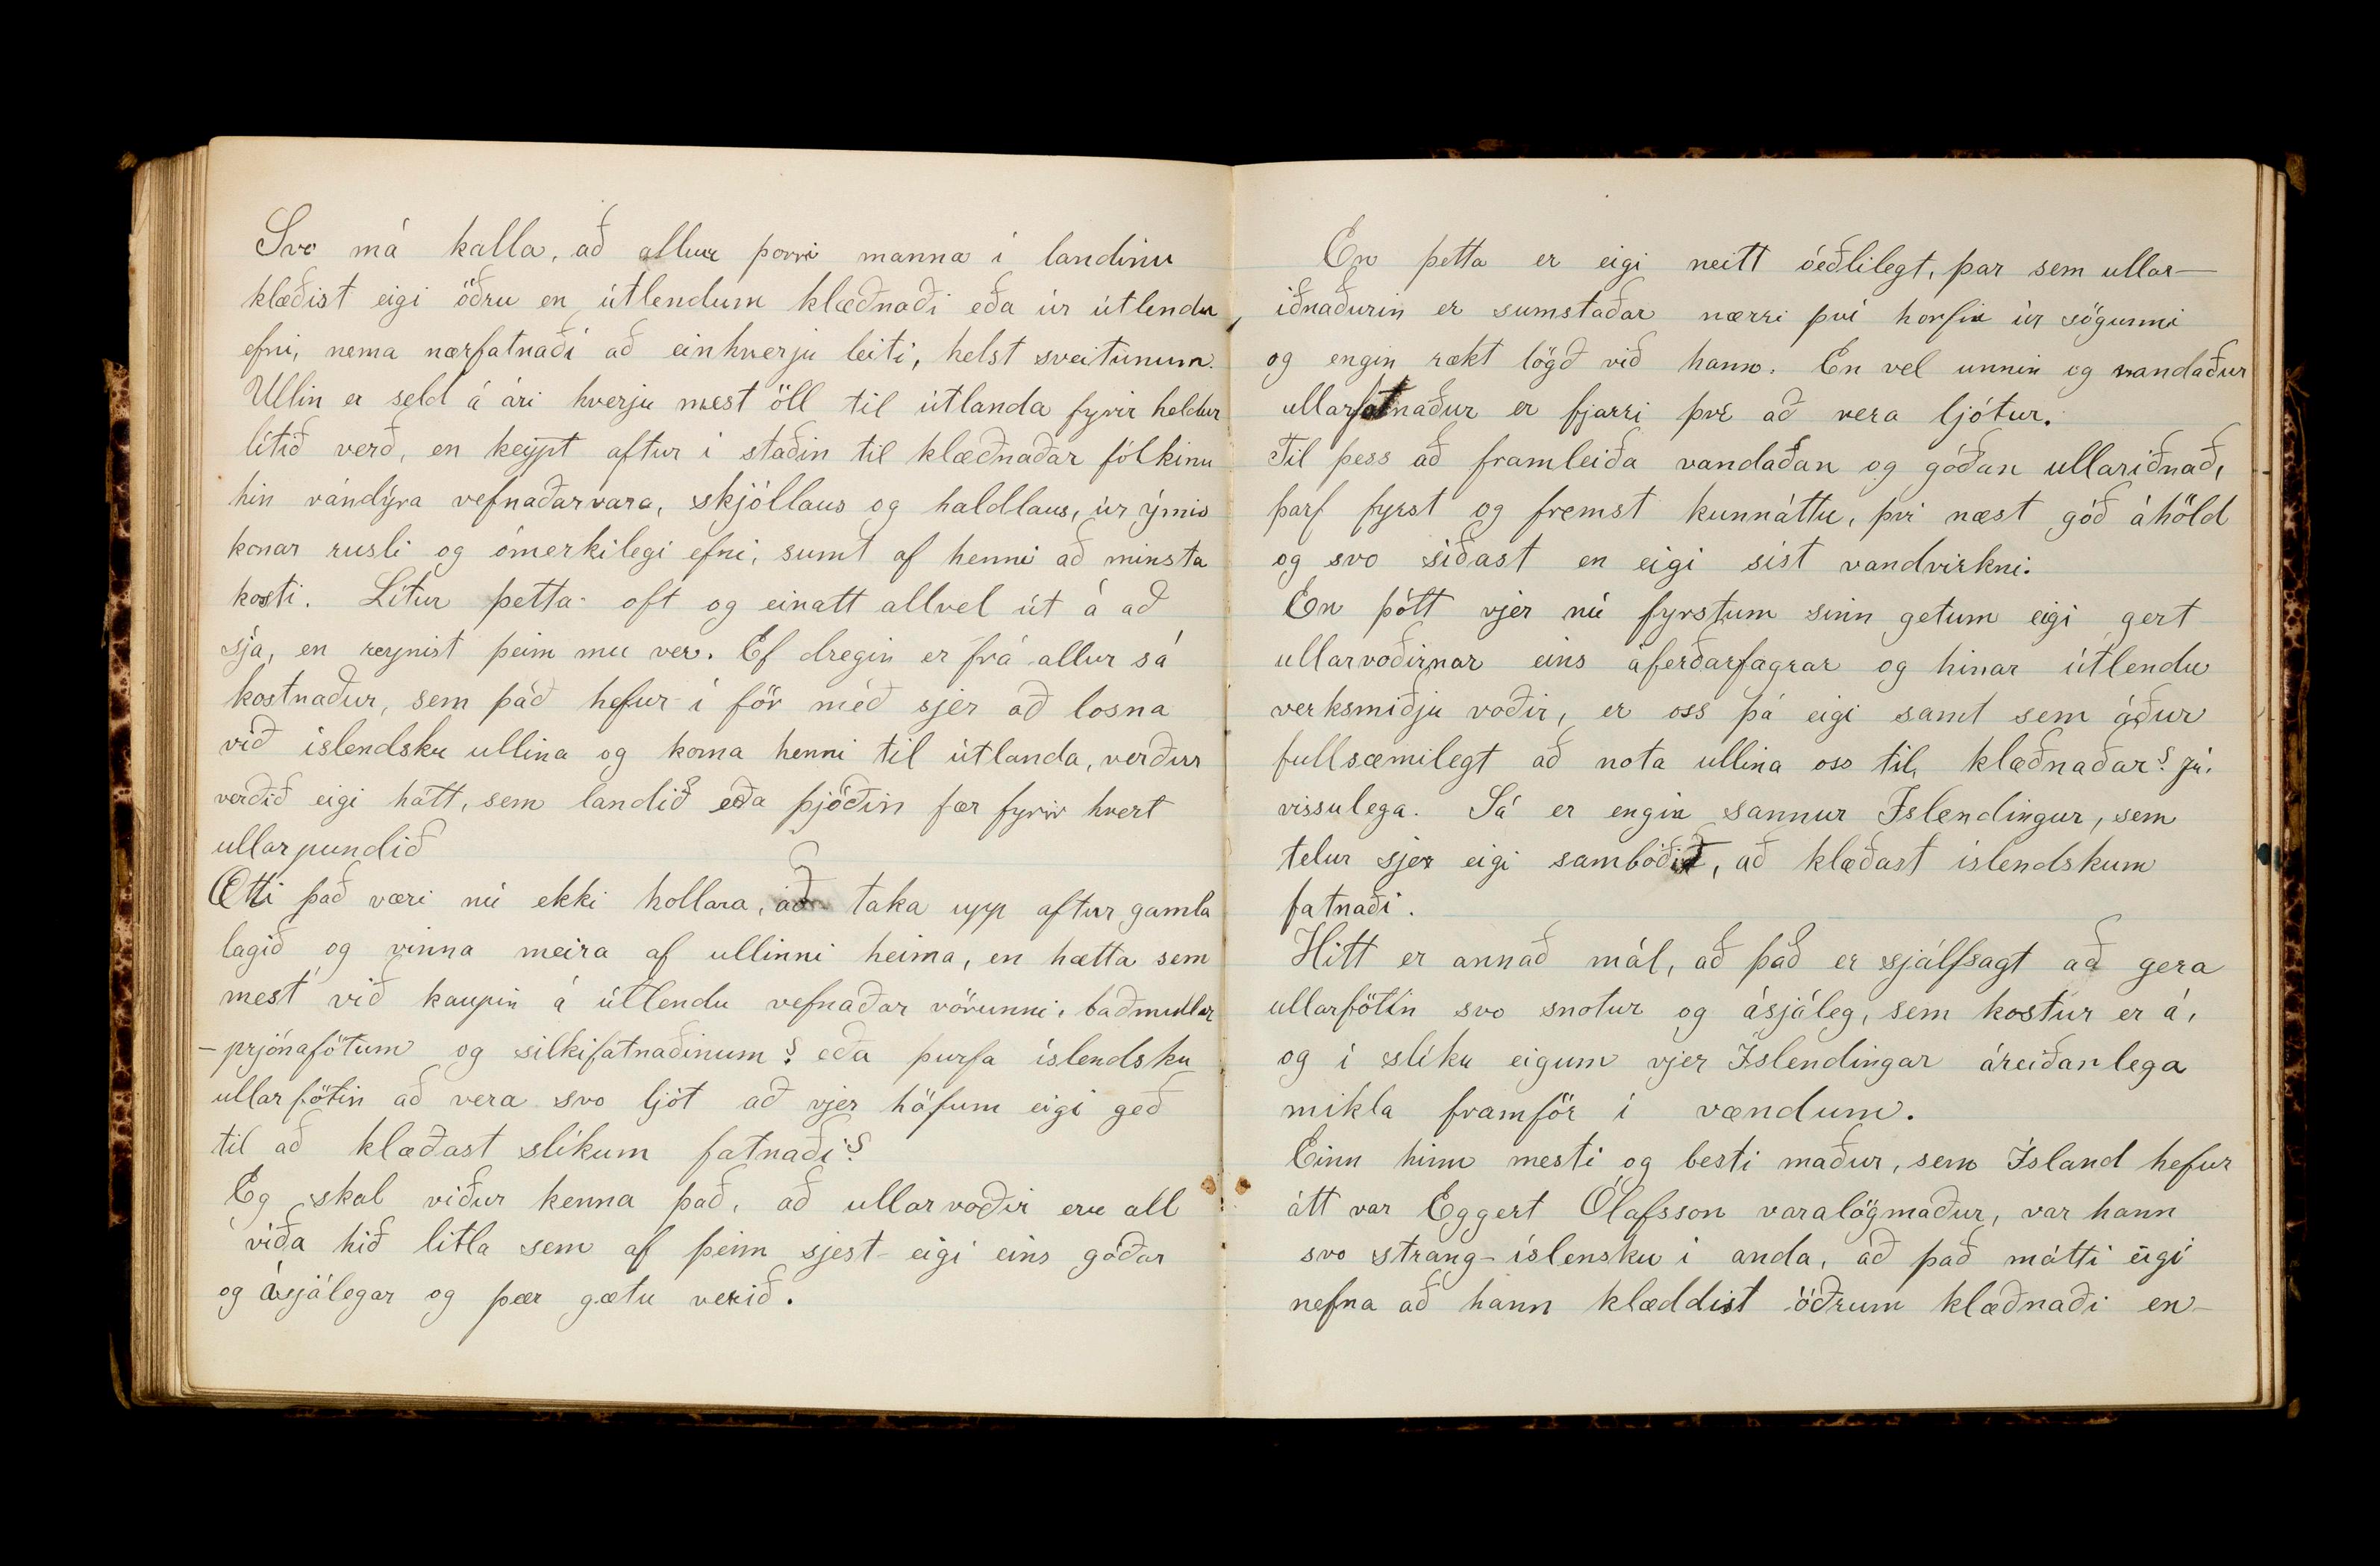 Svo má kalla, að allur þorri manna í landinu
klæðist eigi öðru en útlendum klæðnaði eða úr útlendu
efni, nema nærfatnaði að einhverju leiti, helst sveitunum.
Ullin er seld á ári hverju mest öll til útlanda fyrir heldur
lítið verð, en keypt aftur í staðin til klæðnaðar fólkinu
hin vándýra vefnaðarvara, skjóllaus og haldlaus, úr ýmis
konar rusli og ómerkilegi efni, sumt af henni að minsta
kosti. Lítur þetta oft og einatt allvel út á að
sjá, en reynist þeim mu ver. Ef dregin er frá allur sá
kostnaður, sem það hefur í för með sjer að losna
við íslendsku ullina og koma henni til útlanda, verður
verðið eigi hátt, sem landið eða þjóðin fær fyrir hvert
ullarpundið
Ætti það væri nú ekki hollara, að taka upp aftur gamla
lagið og vinna meira af ullinni heima, en hætta sem
mest við kaupin á útlendu vefnaðar vörunni, baðmullar
-prjónafötum og silkifatnaðinum? eða þurfa íslendsku
ullarfötin að vera svo ljót að vjer höfum eigi geð
til að klæðast slíkum fatnaði?
Eg skal viður kenna það, að ullarvoðir eru all
víða hið litla sem af þeim sjest eigi eins góðar
og ásjálegar og þær gætu verið.
En þetta er eigi neitt óeðlilegt, þar sem ullar-
iðnaðurin er sumstaðar nærri því horfin úr sögunni
og engin rækt lögð við hann. En vel unnin og vandaður
ullarfatnaður er fjarri því að vera ljótur.
Til þess að framleiða vandaðan og góðan ullariðnað,
þarf fyrst og fremst kunnáttu, því næst góð áhöld
og svo síðast en eigi síst vandvirkni.
En þótt vjer nú fyrstum sinn getum eigi gert
ullarvoðirnar eins áferðarfagrar og hinar útlendu
verksmiðju voðir, er oss þá eigi samt sem áður
fullsæmilegt að nota ullina oss til klæðnaðar? jú,
vissulega. Sá er engin sannur Íslendingur, sem
telur sjer eigi samboðið, að klæðast íslendskum
fatnaði.
Hitt er annað mál, að það er sjálfsagt að gera
ullarfötin svo snotur og ásjáleg, sem kostur er á,
og í slíku eigum vjer Íslendingar áreiðanlega
mikla framför í vændum.
Einn hinn mesti og besti maður, sem Ísland hefur
átt var Eggert Ólafsson varalögmaður, var hann
svo strang-íslensku i anda, að það mátti eigi
nefna að hann klæddist öðrum klæðnaði en